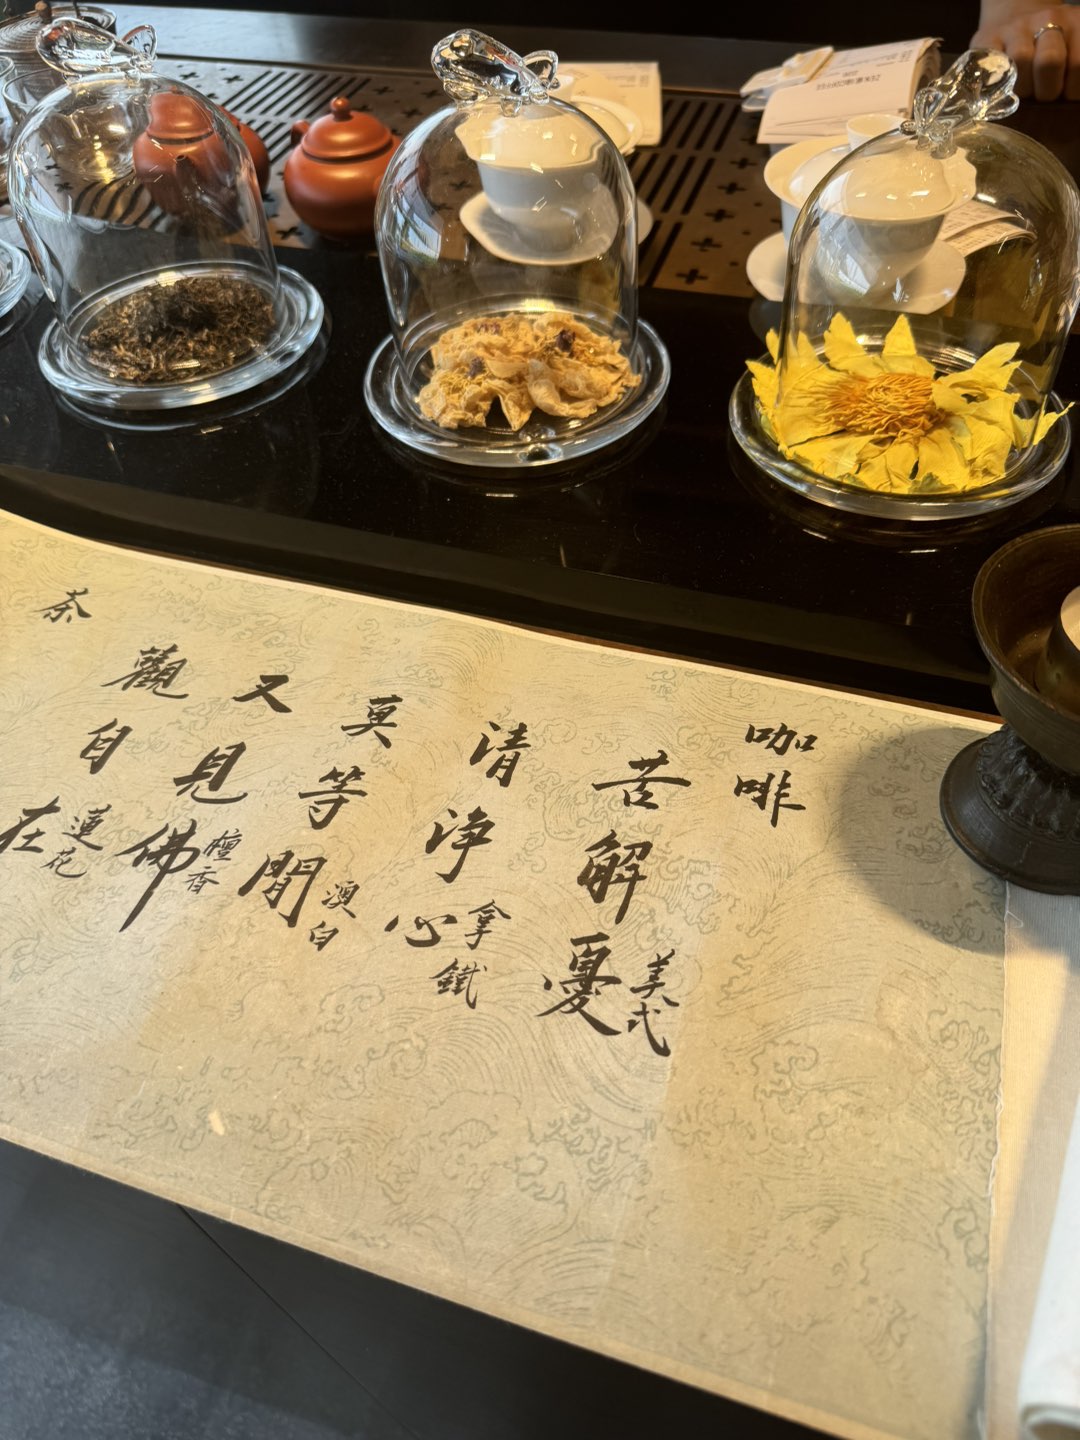 咖啡
苦解憂
美式
清淨心
拿鐵
莫等閒
澳白
又見佛
檀香
觀自在
蓮花
茶